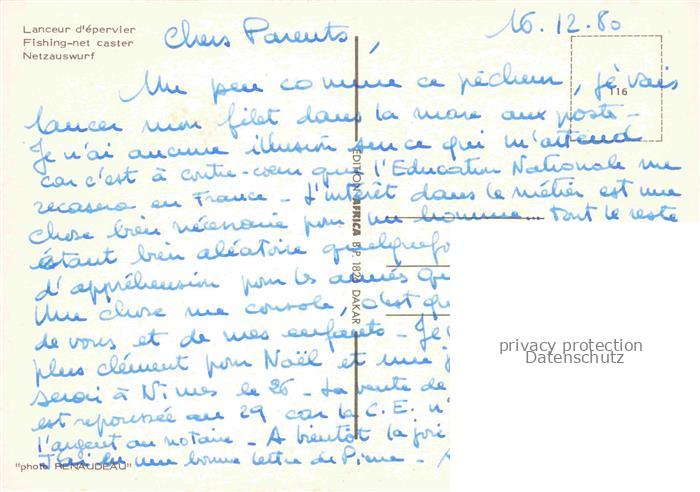 Lanceur d'épervier
Fishing-net caster
Netzauswurf
16.12.80
Chers Parents,
Un peu comme ce pêcheur, je vais
lancer mon filet dans la mare aux poste -
Je n'ai aucune illusion sur ce qui m'attend
car c'est à contre-coeur que l'Education Nationale me
recasera en France - L'intérêt dans le métier est une
chose bien nécessaire pour un homme... tout le reste
étant bien aléatoire quelquefo
d'appréhension pour les années qu
Une chose me console, c'est que
de vous et de mes enfants - Je
plus clément pour Noël et une j
serai à Nimes le 26 - La vente de
est repoussée au 29 car la C.E. n'
l'argent au notaire - A bientôt la joie
J'ai eu une bonne lettre de -
T16
EDITION AFRICA B.P. 1826 DAKAR
"photo RENAUDEAU"
privacy protection
Datenschutz